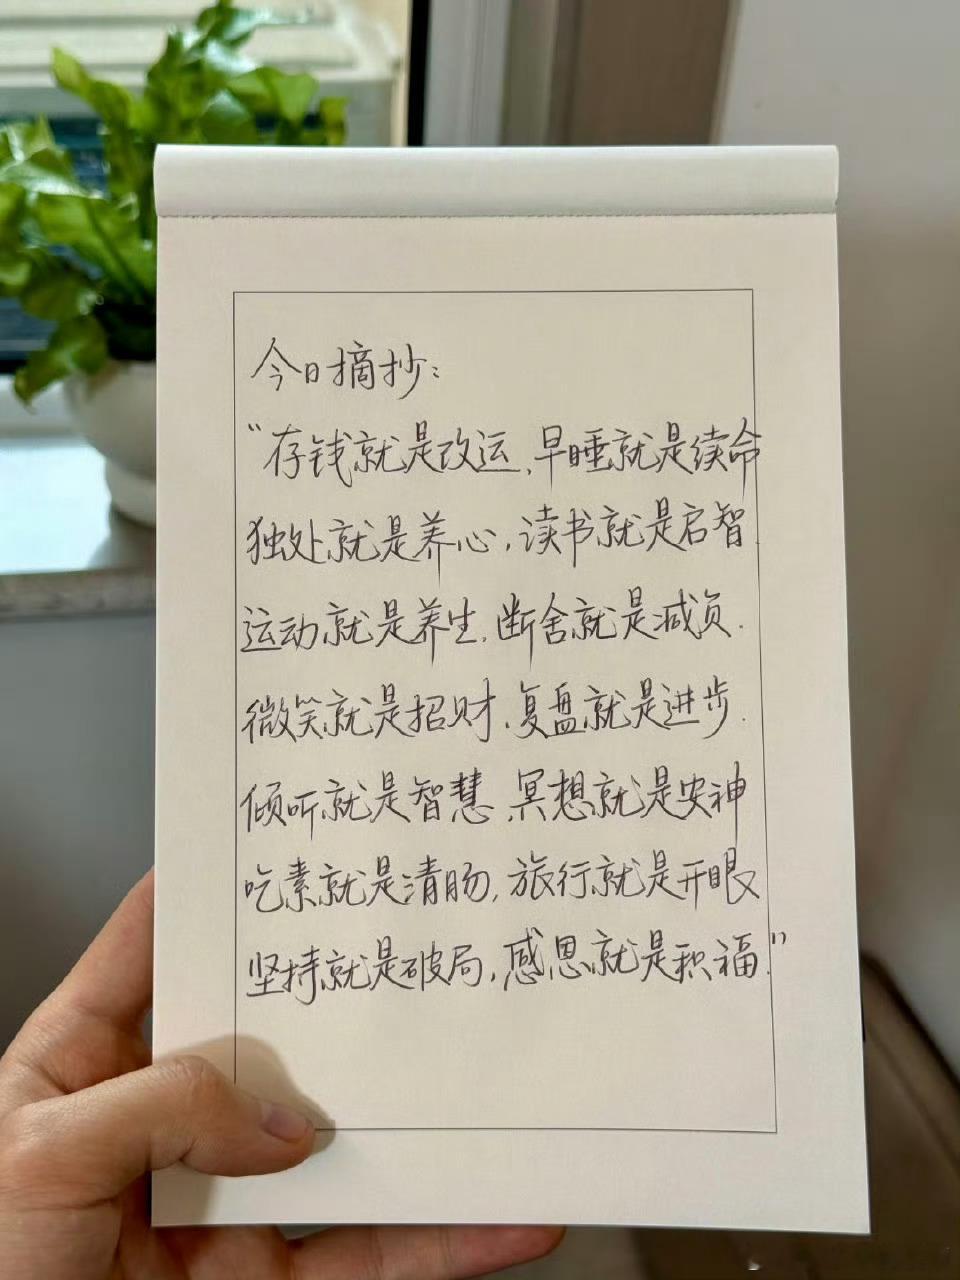 今日摘抄：
“存钱就是改运，早睡就是续命
独处就是养心，读书就是启智
运动就是养生，断舍就是减负.
微笑就是招财，复盘就是进步.
倾听就是智慧，冥想就是安神
吃素就是清肠，旅行就是开眼
坚持就是破局，感恩就是积福.”